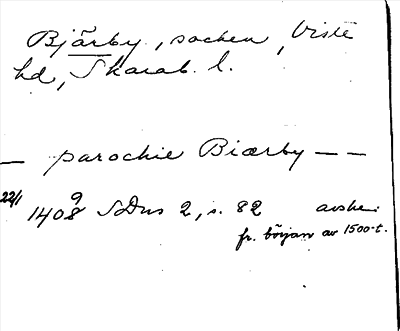 Bjärby, socken, Viste
hd, Skarab. l.
— parochie Biærby — —
22/1 1409 SDns 2, s. 82 avskr.
fr. början av 1500-t.